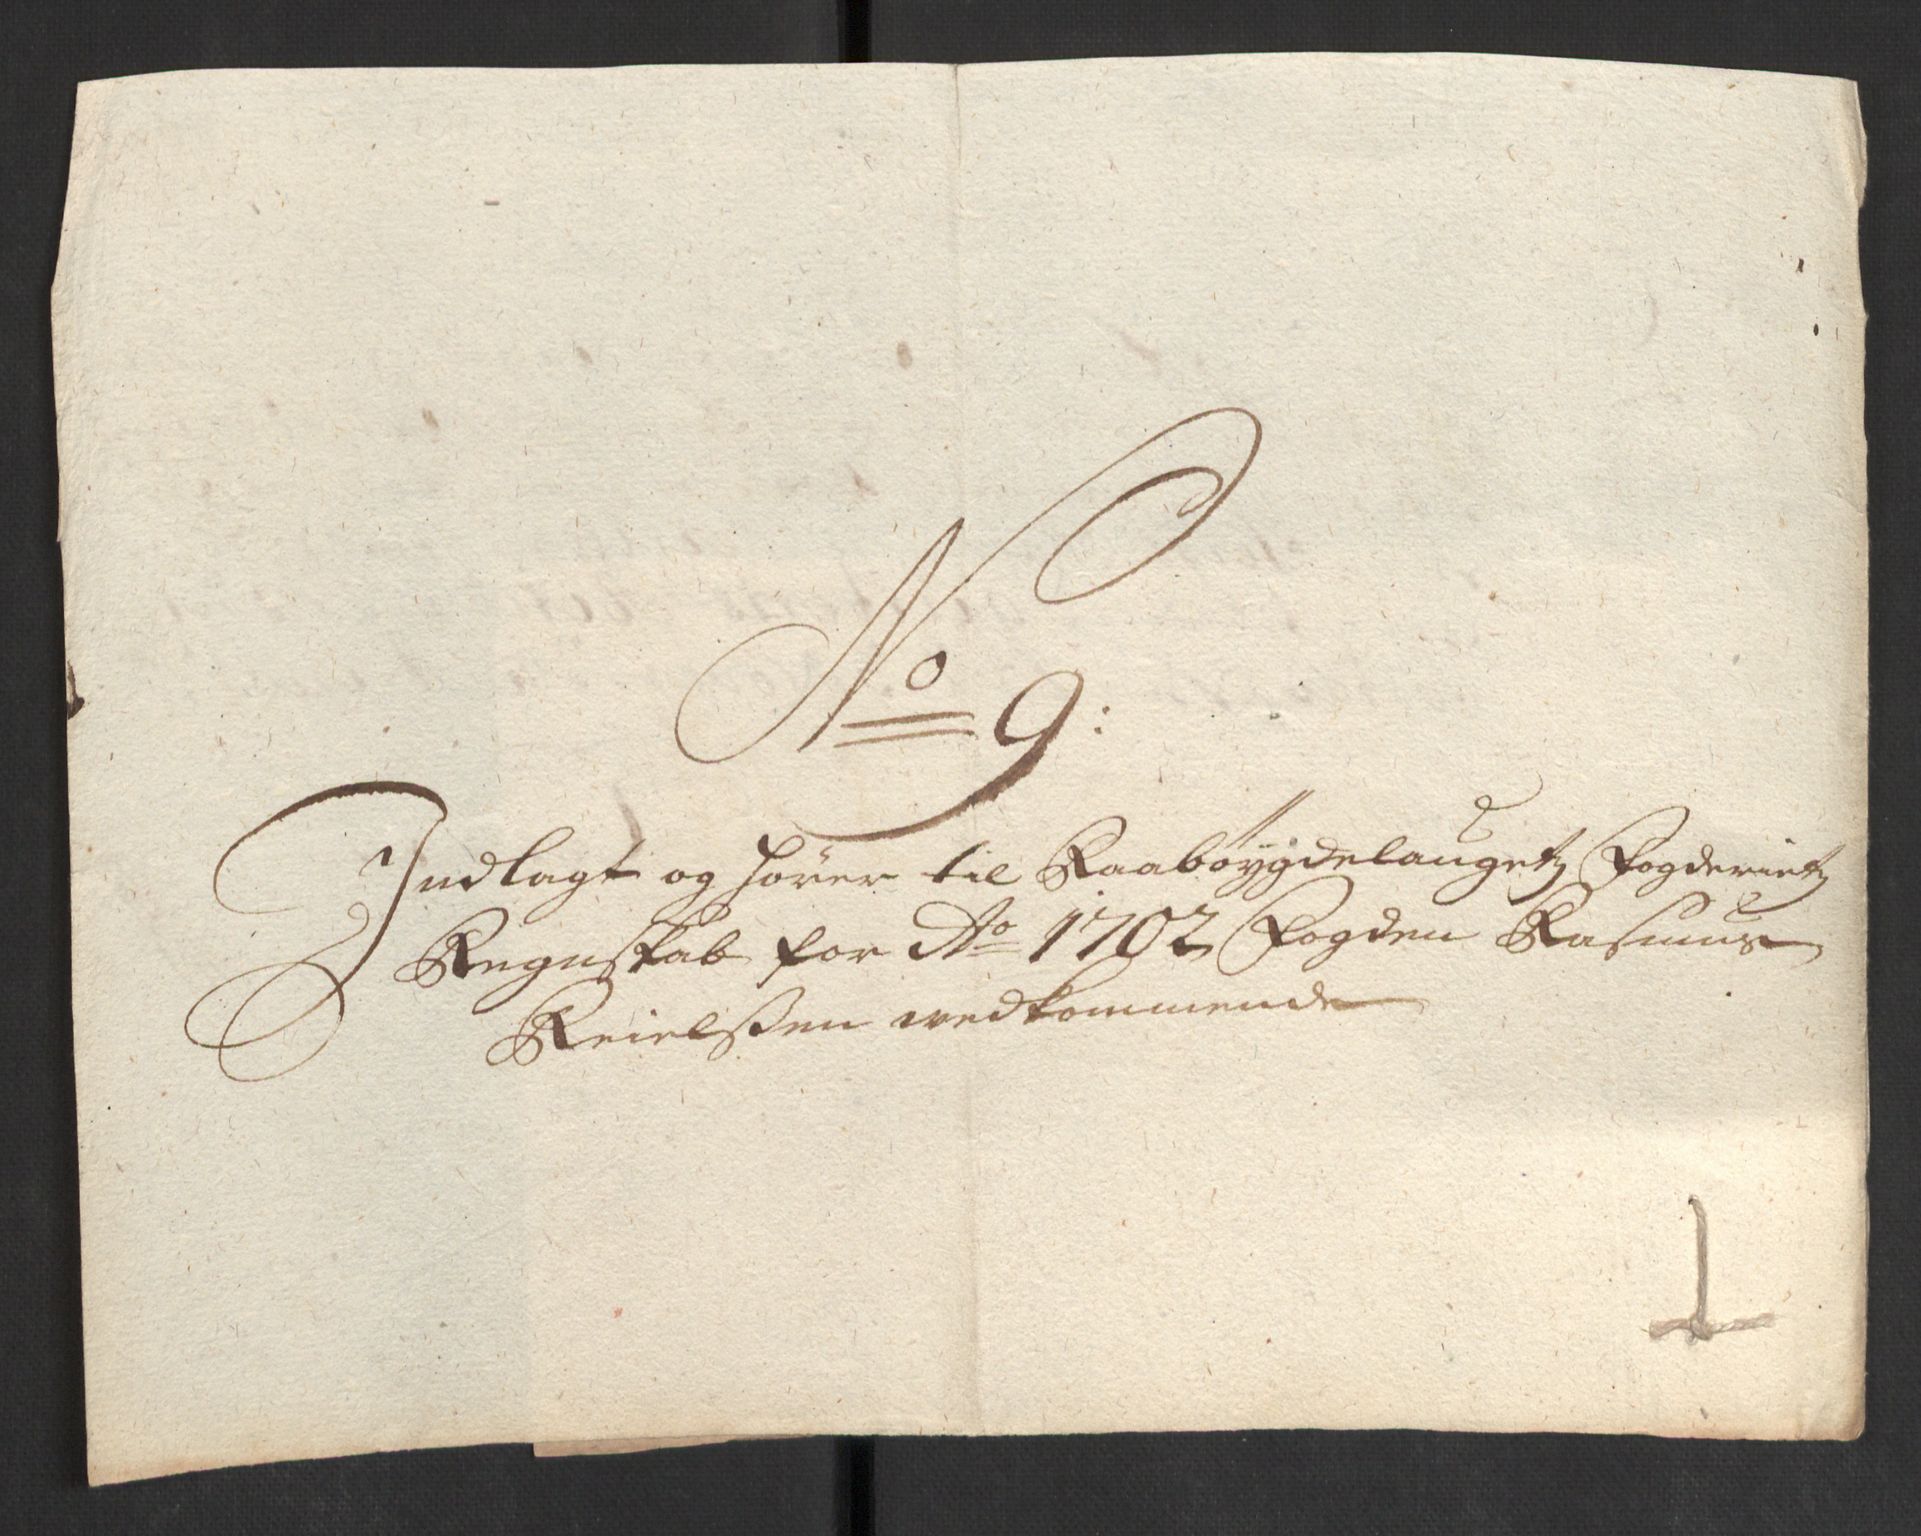 No 9:
Indlagt og hører til Raabøygdelaugetz Fogderietz
Regnskab for Ao 1702 Fogden Rasmus
Reielßen vedkommende